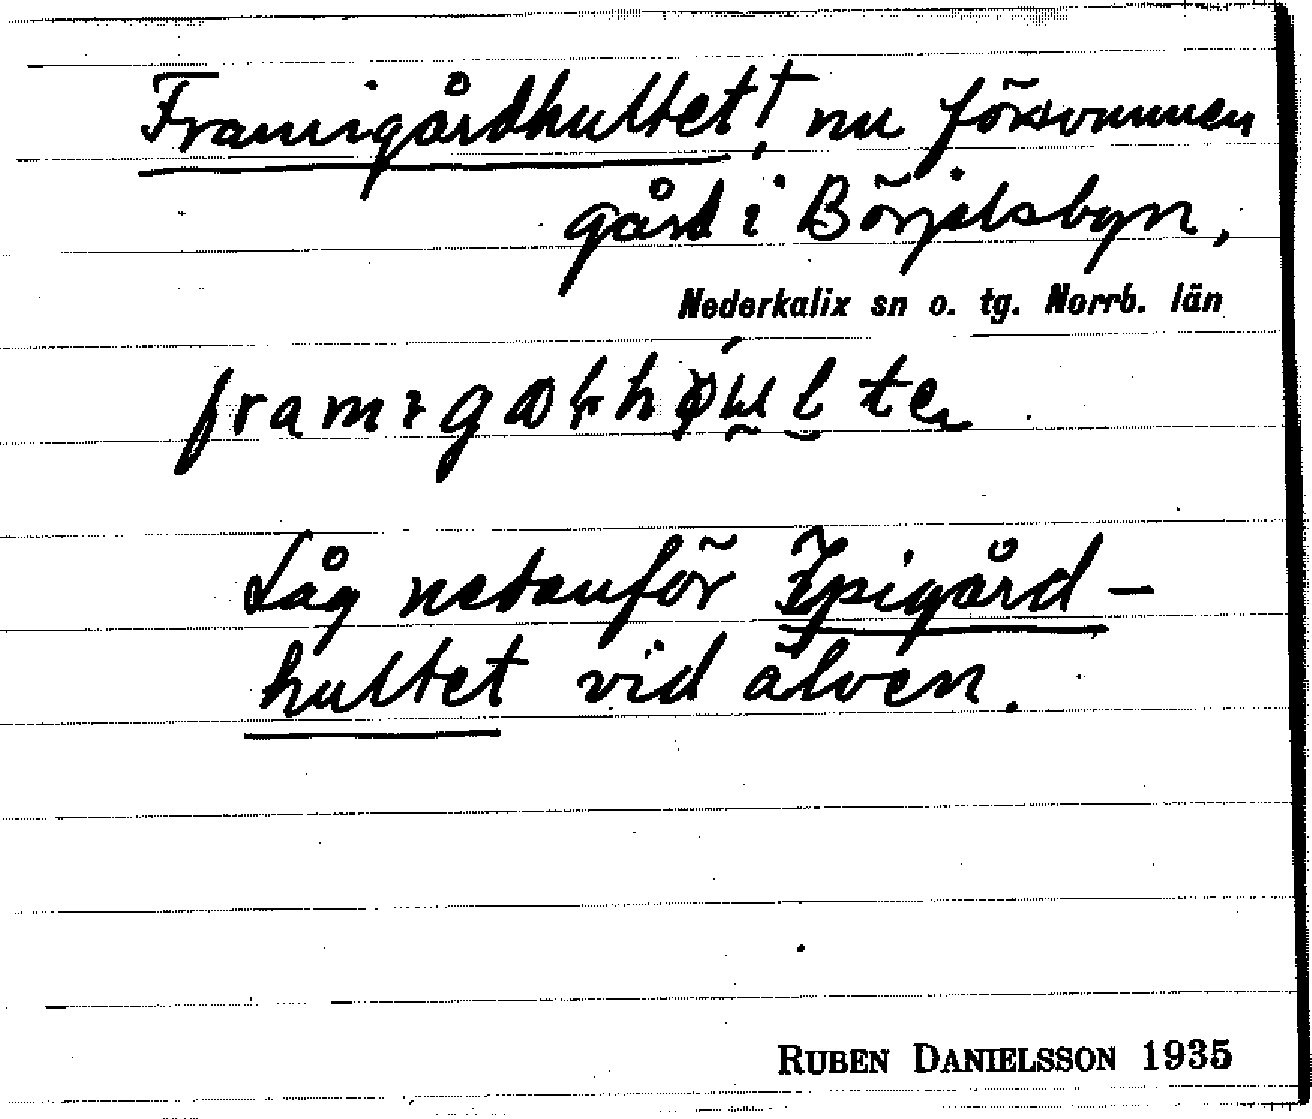 Framigårdhultet†, nu försvunnen
gård i Börjelsbyn,
Nederkalix sn o. tg. Norrb. län
Låg nedanför Ipigård-
hultet vid älven.
RUBEN DANIELSSON 1935